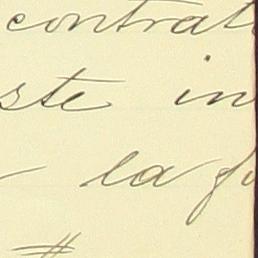 contrat
ste in
la fu
#